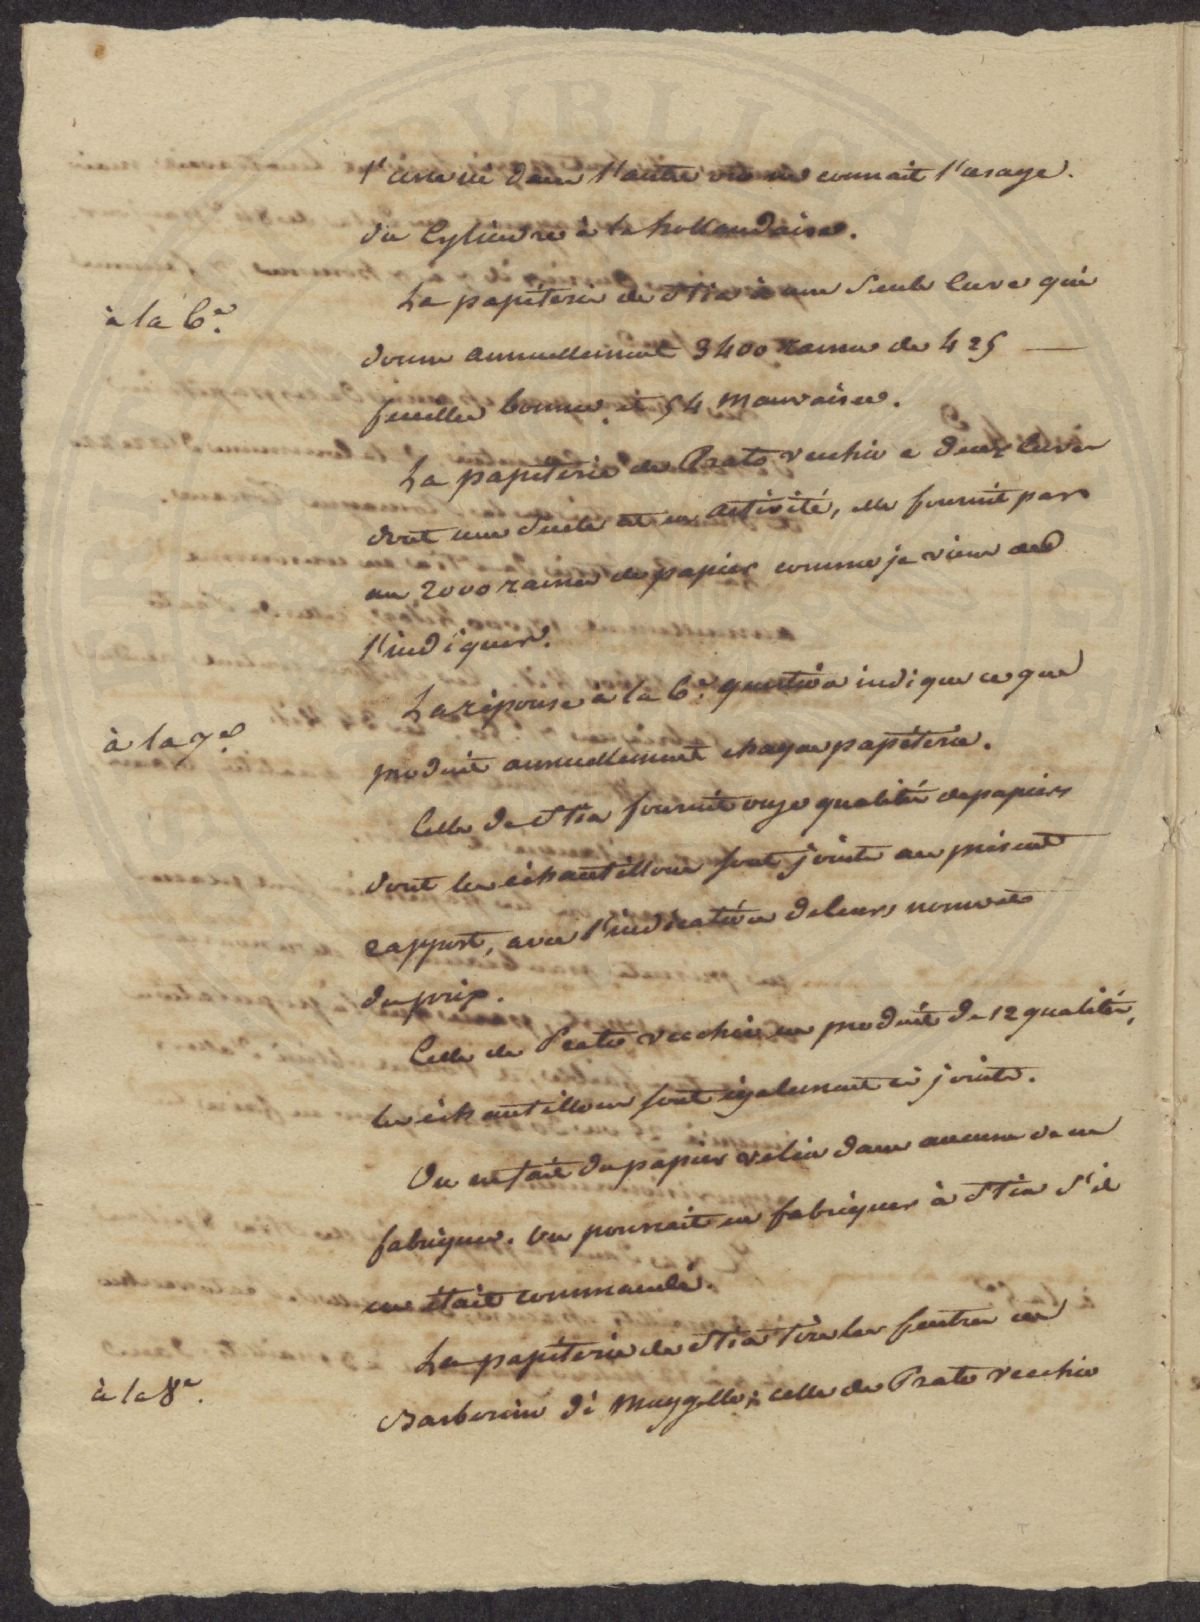 l'une ni dans l'autre on ne connait l'usage
du Cylindre à la hollandaise.
à la 6.e
La papéterie de Stia à une seule Cuve qui
donne annuellement 3400 rames de 425
feuilles bonnes, et 54 mauvaises.
La papéterie de Prato vecchio a deux cuves
dont une seule est en activité, elle fournit par
an 2000 rames de papier comme je viens de
l'indiquer.
à la 7.e
La réponse à la 6.e question indique ce que
produit annuellement chaque papéterie.
Celle de Stia fournit onze qualités de papiers
dont les échantillons sont joints au présent
rapport, avec l'indication de leurs noms et
du prix.
Celle de Prato vecchio en produit de 12 qualités,
les échantillons sont également ci joints.
On ne fait du papier velin dans aucune de ces
fabriques. On pourrait en fabriquer à Stia s'il
en était commandé.
à la 8.e
La papéterie de Stia tire les feutres de
Barberino di Muggello; celle de Prato vecchio
PVBLI